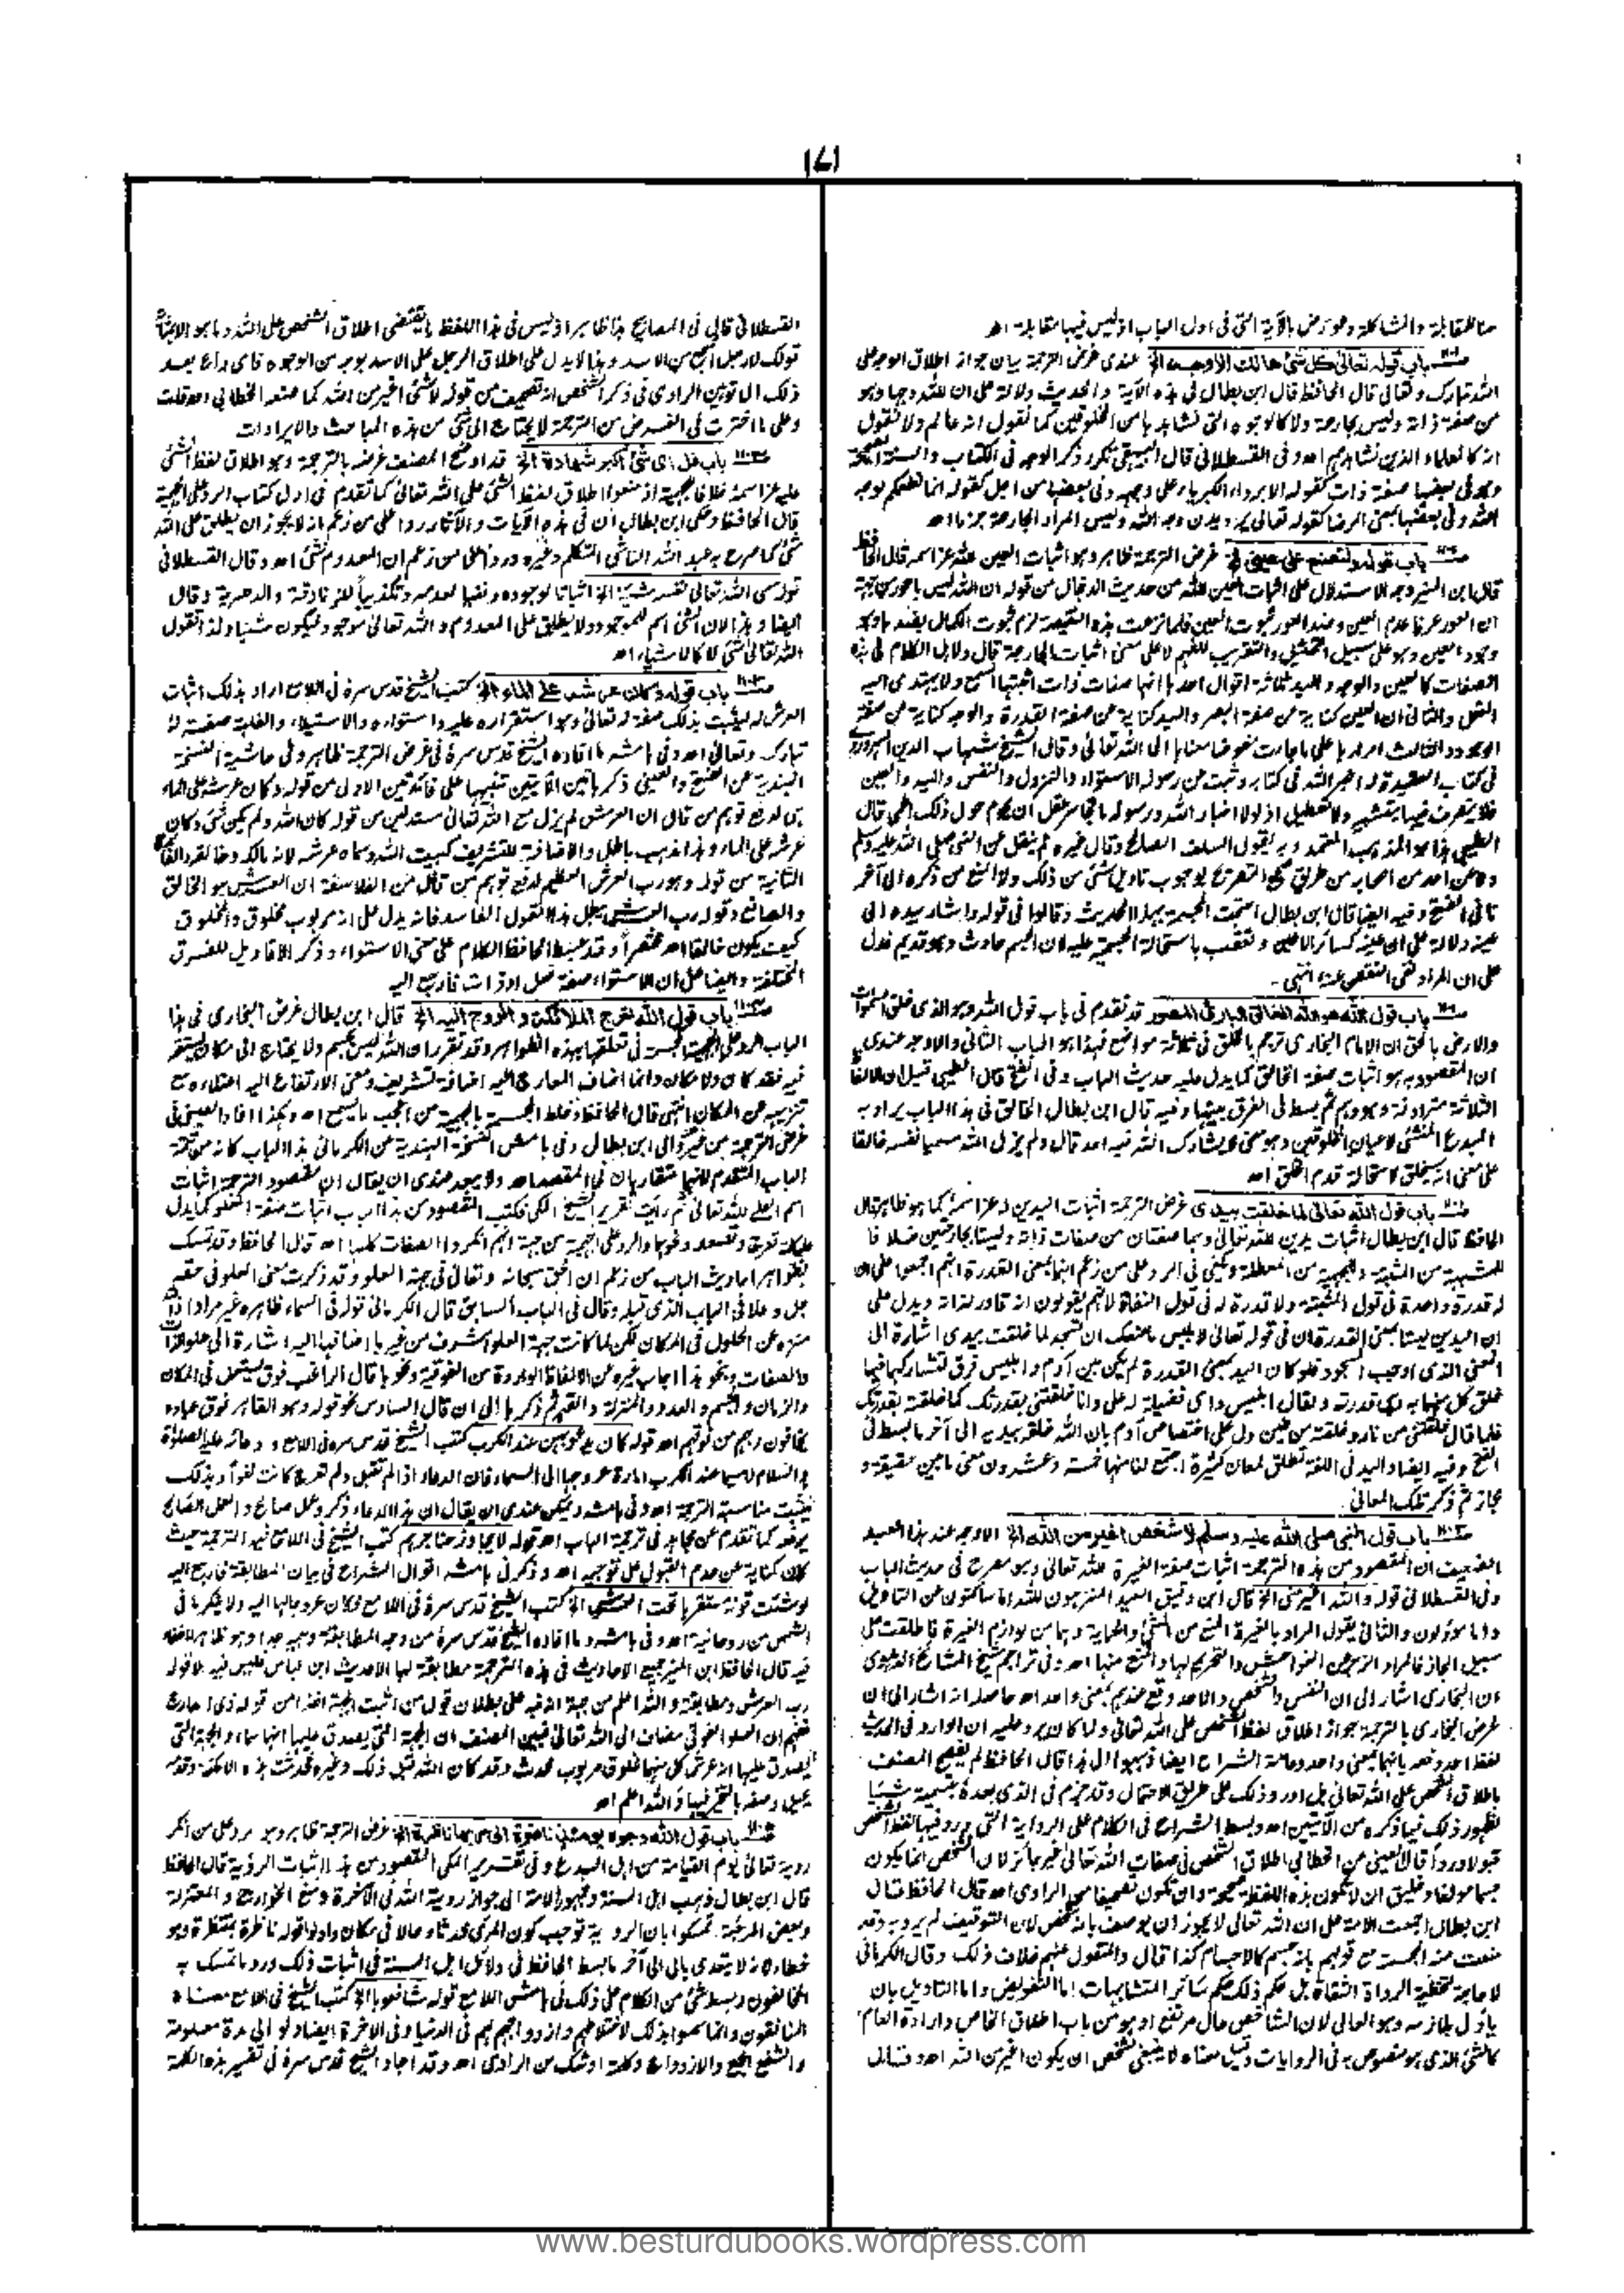 ١٤١
من المقابلة والمشاكلة وعورض بالآية التى فى اول الباب اذ ليس فيها مقابلة اھ
باب قوله تعالى كل شئ هالك الا وجهه الخ عندى غرض الترجمة بيان جواز اطلاق الوجه على
الله تبارك وتعالى قال الحافظ قال ابن بطال فى هذه الآية والحديث دلالة على ان لله وجها وهو
من صفة ذاته وليس بجارحة ولا كالوجوه التى نشاهدها من المخلوقين كما نقول انه عالم ولا نقول
انه كالعلماء الذين نشاهدهم اھ وفى القسطلانى قال البيهقى تكرر ذكر الوجه فى الكتاب والسنة الصحيحة
وهو فى بعضها صفة ذات كقوله الا برداء الكبرياء على وجهه وفى بعضها من اجل كقوله انما نطعمكم لوجه
الله وفى بعضها بمعنى الرضا كقوله تعالى يريدون وجه الله وليس المراد الجارحة جزما اھ
باب قوله ولتصنع على عينى الخ غرض الترجمة ظاهر وهو اثبات العين لله عز اسمه قال الحافظ
قال ابن المنير وجه الاستدلال على اثبات العين لله من حديث الدجال من قوله ان الله ليس باعور من جهة
ان العور عرفا عدم العين وضد العور ثبوت العين فلما نزعت هذه النقيصة لزم ثبوت الكمال بضدها وهو
وجود العين وهو على سبيل التمثيل والتقريب للفهم لا على معنى اثبات الجارحة قال ولاهل الكلام فى هذه
الصفات كالعين والوجه واليد ثلاثة اقوال احدها انها صفات ذات اثبتها السمع ولا يهتدى اليه
العقل والثانى ان العين كناية عن صفة البصر واليد كناية عن صفة القدرة والوجه كناية عن صفة
الوجود والثالث امرارها على ما جاءت مفوضا معناها الى الله تعالى وقال الشيخ شهاب الدين السهروردى
فى كتاب العقيدة له اخبر الله فى كتابه وثبت عن رسوله الاستواء والنزول والنفس واليد والعين
فلا يتصرف فيها بتشبيه ولا تعطيل اذ لولا اخبار الله ورسوله ما تجاسر عقل ان يحوم حول ذلك الحمى قال
الطيبى هذا هو المذهب المعتمد وبه يقول السلف الصالح وقال غيره لم ينقل عن النبى صلى الله عليه وسلم
ولا عن احد من اصحابه من طريق صحيح التصريح بوجوب تاويل شئ من ذلك ولا المنع من ذكره الى آخر
ما فى الفتح وفيه ايضا قال ابن بطال احتجت المجسمة بهذا الحديث وقالوا فى قوله واشار بيده الى
عينه دلالة على ان عينه كسائر الاعين وتعقب باستحالة الجسمية عليه لان الجسم حادث وهو قديم فدل
على ان المراد نفى النقص عنه انتهى۔
باب قول الله هو الله الخالق البارئ المصور قد تقدم فى باب قول الله وهو الذى خلق السموات
والارض بالحق ان الامام البخارى ترجم بالخلق فى ثلاثة مواضع فهذا هو الباب الثانى والاوجه عندى
ان المقصود به هو اثبات صفة الخالق كما يدل عليه حديث الباب وفى الفتح قال الطيبى قيل ان الالفاظ
الثلاثة مترادفة وهو وهم ثم بسط فى الفرق بينها وفيه قال ابن بطال الخالق فى هذا الباب يراد به
المبدع المنشئ لاعيان المخلوقين وهو معنى لا يشارك الله فيه احد قال ولم يزل الله مسميا نفسه خالقا
على معنى انه سيخلق لاستحالة قدم الخلق اھ
باب قول الله تعالى لما خلقت بيدى غرض الترجمة اثبات اليدين له عز اسمه كما هو ظاهر قال
الحافظ قال ابن بطال اثبات يدين لله تعالى وهما صفتان من صفات ذاته وليستا بجارحتين خلافا
للمشبهة من المثبتة وللجهمية من المعطلة ويكفى فى الرد على من زعم انهما بمعنى القدرة انهم اجمعوا على ان
له قدرة واحدة فى قول المثبتة ولا قدرة له فى قول النفاة لانهم يقولون انه قادر لذاته ويدل على
ان اليدين ليستا بمعنى القدرة ان فى قوله تعالى لابليس ما منعك ان تسجد لما خلقت بيدى اشارة الى
المعنى الذى اوجب السجود فلو كان اليد بمعنى القدرة لم يكن بين آدم وابليس فرق لتشاركهما فيما
خلق كل منهما به وهى قدرته ولقال ابليس واى فضيلة له على وانا خلقتنى بقدرتك كما خلقته بقدرتك
فلما قال خلقتنى من نار وخلقته من طين دل على اختصاص آدم بان الله خلقه بيديه الى آخر ما بسط فى
الفتح وفيه ايضا واليد فى اللغة تطلق لمعان كثيرة اجتمع لنا منها خمسة وعشرون معنى ما بين حقيقة و
مجاز ثم ذكر تلك المعانى۔
باب قول النبى صلى الله عليه وسلم لا شخص اغير من الله الخ الاوجه عند هذا العبد
الضعيف ان المقصود من هذه الترجمة اثبات صفة الغيرة لله تعالى وهو مصرح فى حديث الباب
وفى القسطلانى قوله والله اغير منى الخ قال ابن دقيق العيد المنزهون لله اما ساكتون عن التاويل
واما مؤولون والثانى يقول المراد بالغيرة المنع من الشئ والحماية وهما من لوازم الغيرة فاطلقت على
سبيل المجاز فالمراد الزجر عن الفواحش والتحريم لها والمنع منها اھ وفى تراجم شيخ المشائخ الدهلوى
ان البخارى اشار الى ان النفس والشخص والاحد وقع عندهم بمعنى واحد اھ حاصله انه اشار الى ان
غرض البخارى بالترجمة جواز اطلاق لفظ الشخص على الله تعالى ولما كان يرد عليه ان الوارد فى الحديث
لفظ احد دفعه بانهما بمعنى واحد وعامة الشراح ايضا ذهبوا الى هذا قال الحافظ لم يفصح المصنف
باطلاق الشخص على الله تعالى بل اورد ذلك على طريق الاحتمال وقد جزم فى الذى بعده بتسميته شيئا
لظهور ذلك فيما ذكره من الآيتين اھ وبسط الشراح فى الكلام على الرواية التى ورد فيها لفظ الشخص
قبولا وردا قال العينى عن الخطابى اطلاق الشخص فى صفات الله تعالى غير جائز لان الشخص انما يكون
جسما مؤلفا وخليق ان لا تكون هذه اللفظة صحيحة وان تكون تصحيفا من الراوى اھ قال الحافظ قال
ابن بطال اجمعت الامة على ان الله تعالى لا يجوز ان يوصف بانه شخص لان التوقيف لم يرد به وقد
منعت منه المجسمة مع قولهم بانه جسم كالاجسام كذا قال والمنقول عنهم خلاف ذلك وقال الكرمانى
لا حاجة لتخطئة الرواة الثقات بل حكم ذلك حكم سائر المتشابهات اما التفويض واما التاويل بان
يأول بلازمه وهو العالى لان الشاخص عال مرتفع او هو من باب اطلاق الخاص وارادة العام
كالشئ الذى هو منصوص به فى الروايات وقيل معناه لا ينبغى لشخص ان يكون اغير من الله اھ وقال
القسطلانى قال فى المصابيح هذا ظاهر اذ ليس فى هذا اللفظ ما يقتضى اطلاق الشخص على الله وما هو الا بمثابة
قولك لا رجل اشجع من الاسد وهذا لا يدل على اطلاق الرجل على الاسد بوجه من الوجوه فاى داع بعد
ذلك الى توهين الراوى فى ذكر الشخص انه تصحيف من قوله لا شئ اغير من الله كما صنعه الخطابى اھ قلت
وعلى ما اخترت فى الغرض من الترجمة لا يحتاج الى شئ من هذه المباحث والايرادات
باب قل اى شئ اكبر شهادة الخ قد اوضح المصنف غرضه بالترجمة وهو اطلاق لفظ الشئ
عليه عز اسمه خلافا للجهمية اذ منعوا اطلاق لفظ الشئ على الله تعالى كما تقدم فى اول كتاب الرد على الجهمية
قال الحافظ وحكى ابن بطال ان فى هذه الآيات والآثار ردا على من زعم انه لا يجوز ان يطلق على الله
شئ كما صرح به عبد الله الناشى المتكلم وغيره وردا على من زعم ان المعدوم شئ اھ وقال القسطلانى
قوله سمى الله تعالى نفسه شيئا الخ اثباتا لوجوده ونفيا لعدمه وتكذيبا للزنادقة والدهرية وقال
ايضا وهذا لان الشئ اسم للموجود ولا يطلق على المعدوم والله تعالى موجود فيكون شيئا ولذا نقول
الله تعالى شئ لا كالاشياء اھ
باب قوله وكان عرشه على الماء الخ كتب الشيخ قدس سره فى اللامع اراد بذلك اثبات
العرش له ليثبت بذلك صفة له تعالى وهو استقراره عليه واستواءه والاستيلاء والغلبة صفة له
تبارك وتعالى اھ وفى هامشه ما افاده الشيخ قدس سره فى غرض الترجمة ظاهر وفى حاشية النسخة
الهندية عن الفتح والعينى ذكر هاتين الآيتين تنبيها على فائدتين الاولى من قوله وكان عرشه على الماء
هى لدفع توهم من قال ان العرش لم يزل مع الله تعالى مستدلين من قوله كان الله ولم يكن شئ وكان
عرشه على الماء وهذا مذهب باطل والاضافة للتشريف كبيت الله وسماه عرشه لانه مالكه وخالقه والفائدة
الثانية من قوله وهو رب العرش العظيم لدفع توهم من قال من الفلاسفة ان العرش هو الخالق
والصانع وقوله رب العرش يبطل هذا القول الفاسد فانه يدل على انه مربوب مخلوق والمخلوق
كيف يكون خالقا اھ مختصرا وقد بسط الحافظ الكلام على معنى الاستواء وذكر الاقاويل للفرق
المختلفة وايضا على ان الاستواء صفة فعل او ذات فارجع اليه
باب قول الله تعرج الملائكة والروح اليه الخ قال ابن بطال غرض البخارى فى هذا
الباب الرد على الجهمية المجسمة فى تعلقها بهذه الظواهر وقد تقرر ان الله ليس بجسم ولا يحتاج الى مكان يستقر
فيه فقد كان ولا مكان وانما اضاف المعارج اليه اضافة تشريف ومعنى الارتفاع اليه اعتلاءه مع
تنزيهه عن المكان انتهى قال الحافظ وخلط المجسمة بالجهمية من اعجب ما يسمع اھ وهكذا افاد العينى فى
غرض الترجمة من غير عزو الى ابن بطال وفى هامش النسخة الهندية عن الكرمانى هذا الباب كانه من تتمة
الباب المتقدم لانهما متقاربان فى المقصد اھ ولا يبعد عندى ان يقال ان مقصود الترجمة اثبات
اسم العلى لله تعالى ثم رأيت تقرير الشيخ المكى فكتب المقصود من هذا الباب اثبات صفة العلو كما يدل
عليه تعرج وتصعد ونحوها والرد على الجهمية من جهة انهم انكروا الصفات كلها اھ قال الحافظ وقد تمسك
بظواهر احاديث الباب من زعم ان الحق سبحانه وتعالى فى جهة العلو وقد ذكرت معنى العلو فى حقه
جل وعلا فى الباب الذى قبله وقال فى الباب السابق قال الكرمانى قوله فى السماء ظاهره غير مراد اذ الله
منزه عن الحلول فى المكان لكن لما كانت جهة العلو اشرف من غيرها اضافها اليه اشارة الى علو الذات
والصفات وبنحو هذا اجاب غيره عن الالفاظ الواردة من الفوقية ونحوها قال الراغب فوق يستعمل فى المكان
والزمان والجسم والعدد والمنزلة والقهر ثم ذكرها الى ان قال السادس نحو قوله وهو القاهر فوق عباده
يخافون ربهم من فوقهم اھ قوله كان يدعو بهن عند الكرب كتب الشيخ قدس سره فى اللامع ودعائه عليه الصلوة
والسلام لا سيما عند الكرب امارة عروجها الى السماء فان الدعاء اذا لم تقبل ولم تعرج كانت لغوا وبذلك
يثبت مناسبة الترجمة اھ وفى هامشه ويمكن عندى ان يقال ان هذا الدعاء ذكر وعمل صالح والعمل الصالح
يرفعه كما تقدم عن مجاهد فى ترجمة الباب اھ قوله لا يجاوز حناجرهم كتب الشيخ فى اللامع فيه الترجمة حيث
كان كناية عن عدم القبول على توجيه اھ وذكر فى هامشه اقوال الشراح فى بيان المطابقة فارجع اليه
لو شئت قوله مستقرها تحت العرش الخ كتب الشيخ قدس سره فى اللامع فكان عروجها اليه ولا ينكر ما فى
الشمس من روحانية اھ وفى هامشه وما افاده الشيخ قدس سره من وجه المطابقة وجيه جدا وهو ظاهر لا خفاء
فيه قال الحافظ ابن المنير جميع الاحاديث فى هذه الترجمة مطابقة لها الا حديث ابن عباس فليس فيه الا قوله
رب العرش ومطابقته والله اعلم من جهة انه نبه على بطلان قول من اثبت الجهة اخذا من قوله ذى المعارج
ففهم ان العلو الفوقى مضاف الى الله تعالى فبين المصنف ان الجهة التى يصدق عليها انها سماء والجهة التى
يصدق عليها انه عرش كل منهما مخلوق مربوب محدث وقد كان الله قبل ذلك وغيره فحدثت هذه الامكنة وقدمه
يحيل وصفه بالتحيز فيها والله اعلم اھ
باب قول الله وجوه يومئذ ناضرة الى ربها ناظرة الخ غرض الترجمة ظاهر وهو رد على من انكر
رؤية تعالى يوم القيامة من اهل البدع وفى تقرير المكى المقصود من هذا اثبات الرؤية قال الحافظ
قال ابن بطال ذهب اهل السنة وجمهور الامة الى جواز رؤية الله فى الآخرة ومنع الخوارج والمعتزلة
وبعض المرجئة تمسكوا بان الرؤية توجب كون المرئى محدثا وحالا فى مكان واولوا قوله ناظرة بمنتظرة وهو
خطأ لانه لا يتعدى بالى الى آخر ما بسط الحافظ فى دلائل اهل السنة فى اثبات ذلك ورد ما تمسك به
المخالفون وبسط شئ من الكلام على ذلك فى هامش اللامع قوله شافعوها الخ كتب الشيخ فى اللامع معناه
المنافقون وانما سموا بذلك لاختلاطهم وازدواجهم بهم فى الدنيا وفى الآخرة ايضا ولو الى مدة معلومة
والشفع الجمع والازدواج وكلمة او شك من الراوى اھ وقد اجاد الشيخ قدس سره فى تفسير هذه الكلمة
www.besturdubooks.wordpress.com